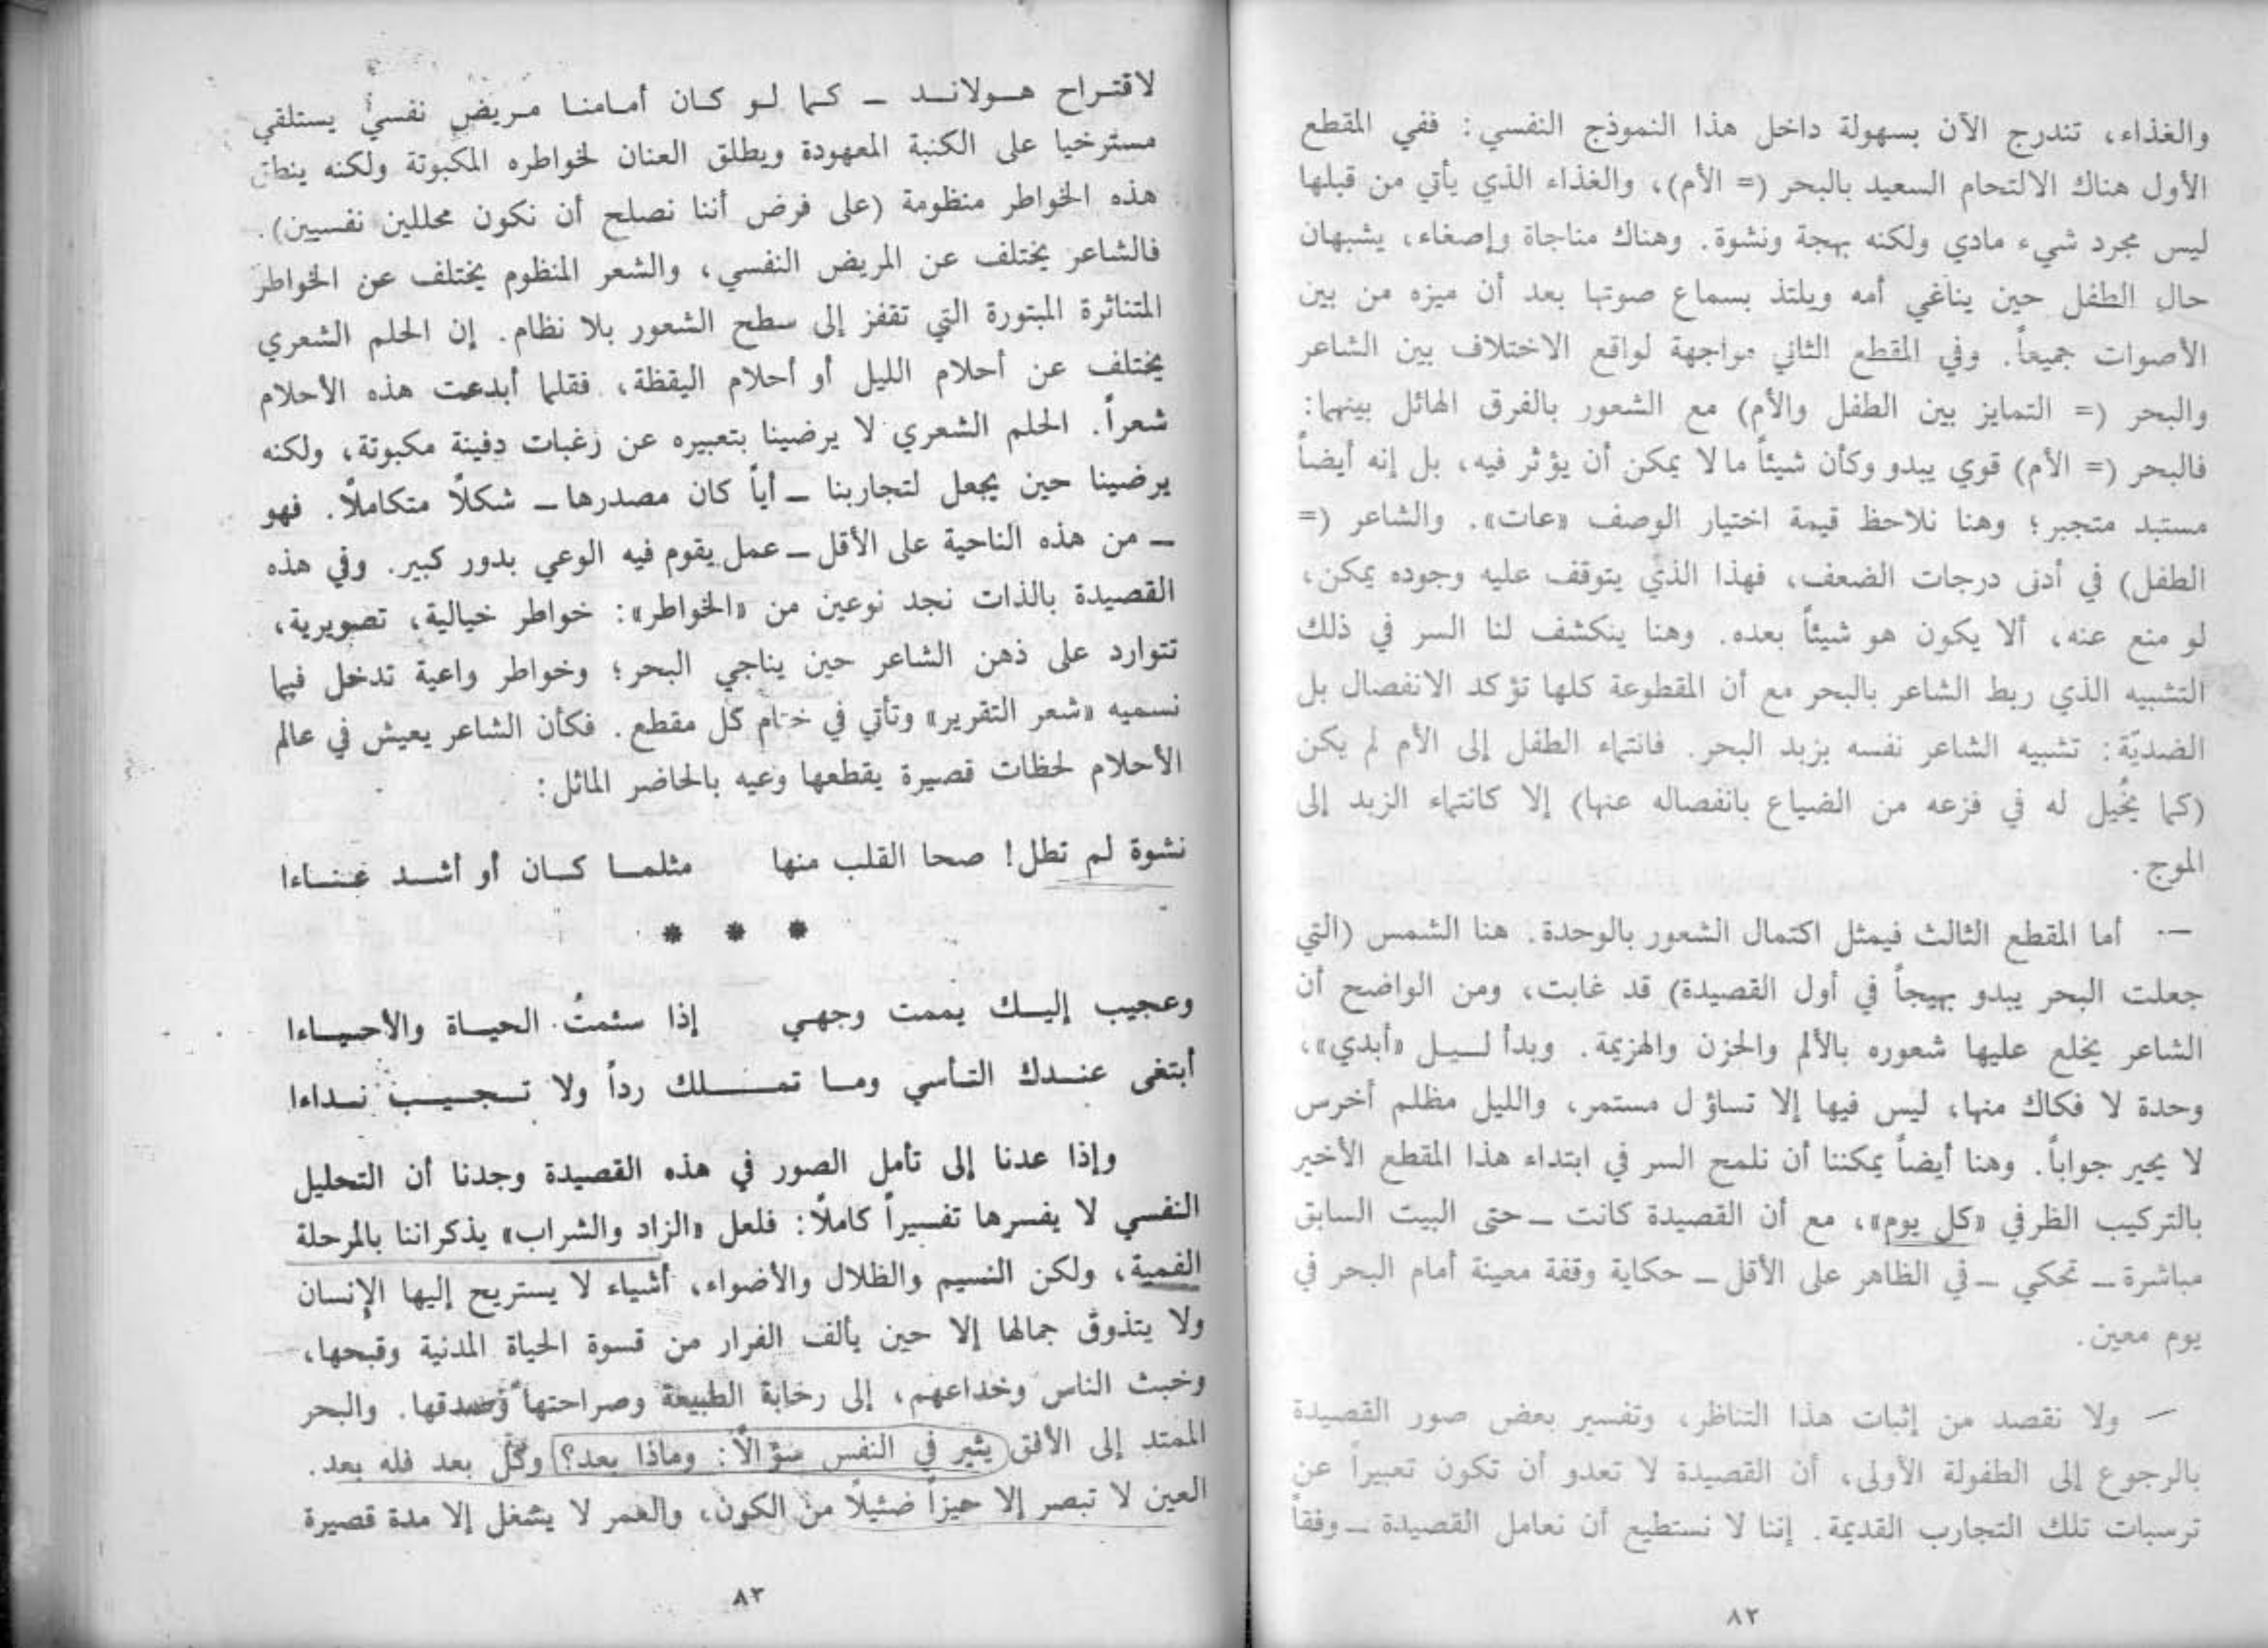 والغذاء، تندرج الآن بسهولة داخل هذا النموذج النفسي: ففي المقطع
الأول هناك الالتحام السعيد بالبحر (= الأم)، والغذاء الذي يأتي من قبلها
ليس مجرد شيء مادي ولكنه بهجة ونشوة. وهناك مناجاة وإصغاء، يشبهان
حال الطفل حين يناغي أمه ويلتذ بسماع صوتها بعد أن ميزه من بين
الأصوات جميعاً. وفي المقطع الثاني مواجهة لواقع الاختلاف بين الشاعر
والبحر (= التمايز بين الطفل والأم) مع الشعور بالفرق الهائل بينهما:
فالبحر (= الأم) قوي يبدو وكأن شيئاً ما لا يمكن أن يؤثر فيه، بل إنه أيضاً
مستبد متجبر؛ وهنا نلاحظ قيمة اختيار الوصف «عات». والشاعر (=
الطفل) في أدنى درجات الضعف، فهذا الذي يتوقف عليه وجوده يمكن،
لو منع عنه، ألا يكون هو شيئاً بعده. وهنا ينكشف لنا السر في ذلك
التشبيه الذي ربط الشاعر بالبحر مع أن المقطوعة كلها تؤكد الانفصال بل
الضديّة: تشبيه الشاعر نفسه بزبد البحر. فانتماء الطفل إلى الأم لم يكن
(كما يُخيل له في فزعه من الضياع بانفصاله عنها) إلا كانتماء الزبد إلى
الموج.
—· أما المقطع الثالث فيمثل اكتمال الشعور بالوحدة. هنا الشمس (التي
جعلت البحر يبدو بهيجاً في أول القصيدة) قد غابت، ومن الواضح أن
الشاعر يخلع عليها شعوره بالألم والحزن والهزيمة. وبدأ ليل «أبدي»،
وحدة لا فكاك منها، ليس فيها إلا تساؤل مستمر، والليل مظلم أخرس
لا يحير جواباً. وهنا أيضاً يمكننا أن نلمح السر في ابتداء هذا المقطع الأخير
بالتركيب الظرفي «كل يوم»، مع أن القصيدة كانت — حتى البيت السابق
مباشرة — تحكي — في الظاهر على الأقل — حكاية وقفة معينة أمام البحر في
يوم معين.
— ولا نقصد من إثبات هذا التناظر، وتفسير بعض صور القصيدة
بالرجوع إلى الطفولة الأولى، أن القصيدة لا تعدو أن تكون تعبيراً عن
ترسبات تلك التجارب القديمة. إننا لا نستطيع أن نعامل القصيدة — وفقاً
٨٢
لاقتراح هولاند — كما لو كان أمامنا مريض نفسيّ يستلقي
مسترخيا على الكنبة المعهودة ويطلق العنان لخواطره المكبوتة ولكنه ينطق
هذه الخواطر منظومة (على فرض أننا نصلح أن نكون محللين نفسيين).
فالشاعر يختلف عن المريض النفسي، والشعر المنظوم يختلف عن الخواطر
المتناثرة المبتورة التي تقفز إلى سطح الشعور بلا نظام. إن الحلم الشعري
يختلف عن أحلام الليل أو أحلام اليقظة، فقلما أبدعت هذه الأحلام
شعراً. الحلم الشعري لا يرضينا بتعبيره عن رغبات دفينة مكبوتة، ولكنه
يرضينا حين يجعل لتجاربنا — أياً كان مصدرها — شكلًا متكاملًا. فهو
— من هذه الناحية على الأقل — عمل يقوم فيه الوعي بدور كبير. وفي هذه
القصيدة بالذات نجد نوعين من «الخواطر»: خواطر خيالية، تصويرية،
تتوارد على ذهن الشاعر حين يناجي البحر؛ وخواطر واعية تدخل فيما
نسميه «شعر التقرير» وتأتي في ختام كل مقطع. فكأن الشاعر يعيش في عالم
الأحلام لحظات قصيرة يقطعها وعيه بالحاضر الماثل:
نشوة لم تطل! صحا القلب منها مثلما كان أو أشد عناءا
* * *
وعجيب إليك يممت وجهي إذا سئمتُ الحياة والأحياءا
أبتغى عندك التأسي وما تملك رداً ولا تجيب نداءا
وإذا عدنا إلى تأمل الصور في هذه القصيدة وجدنا أن التحليل
النفسي لا يفسرها تفسيراً كاملًا: فلعل «الزاد والشراب» يذكراننا بالمرحلة
الفمية، ولكن النسيم والظلال والأضواء، أشياء لا يستريح إليها الإنسان
ولا يتذوق جمالها إلا حين يألف الفرار من قسوة الحياة المدنية وقبحها،
وخبث الناس وخداعهم، إلى رحابة الطبيعة وصراحتها وصدقها. والبحر
الممتد إلى الأفق يثير في النفس سؤالًا: وماذا بعد؟ وكل بعد فله بعد.
العين لا تبصر إلا حيزاً ضئيلًا من الكون، والعمر لا يشغل إلا مدة قصيرة
٨٣